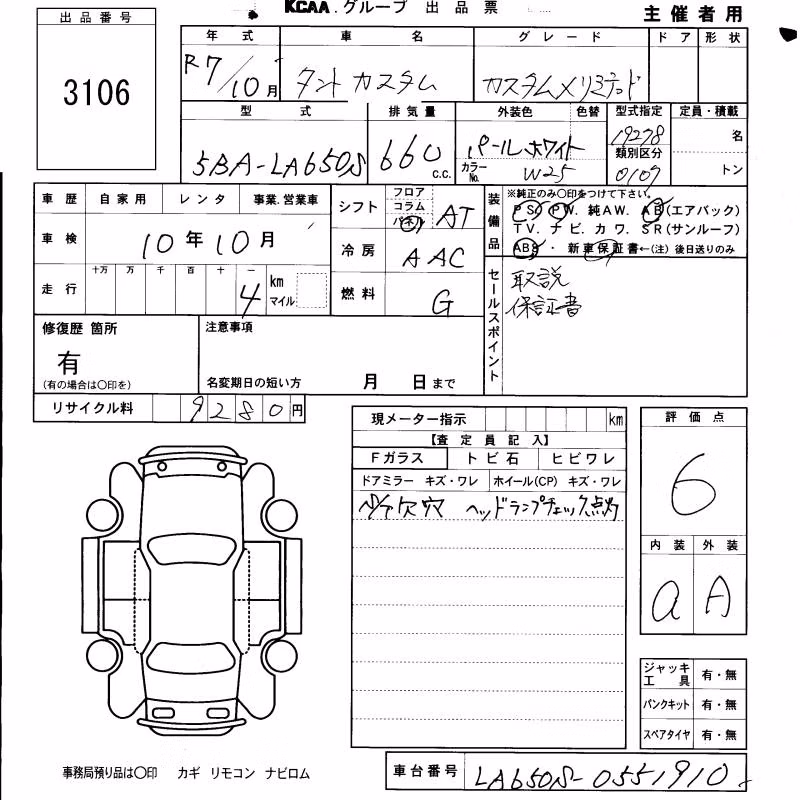 KCAA グループ 出品票
主催者用
出品番号
3106
年式 車名 グレード ドア 形状
R7/10月 タントカスタム カスタムXリミテッド
型式 排気量 外装色 色替 型式指定 定員・積載
5BA-LA650S 660 c.c. パールホワイト 19278 名
カラーNo. W25 類別区分 0107 トン
車歴 自家用 レンタ 事業.営業車
車検 10年10月
走行 十万 万 千 百 十 一 4 km マイル
シフト フロア コラム パネル AT
冷房 AAC
燃料 G
装備品 ※純正のみ〇印をつけて下さい。
PS. PW. 純AW. AB(エアバック)
TV. ナビ. カワ. SR(サンルーフ)
ABS ・ 新車保証書←(注)後日送りのみ
セールスポイント
取説
保証書
修復歴 箇所
有
(有の場合は〇印を)
注意事項
名変期日の短い方 月 日まで
リサイクル料 9280円
現メーター指示 km
【査定員記入】
Fガラス トビ石 ヒビワレ
ドアミラー キズ・ワレ ホイール(CP) キズ・ワレ
欠穴 ヘッドランプチェック点灯
評価点
6
内装 外装
a A
ジャッキ工具 有・無
パンクキット 有・無
スペアタイヤ 有・無
事務局預り品は〇印 カギ リモコン ナビロム
車台番号 LA650S-0551910